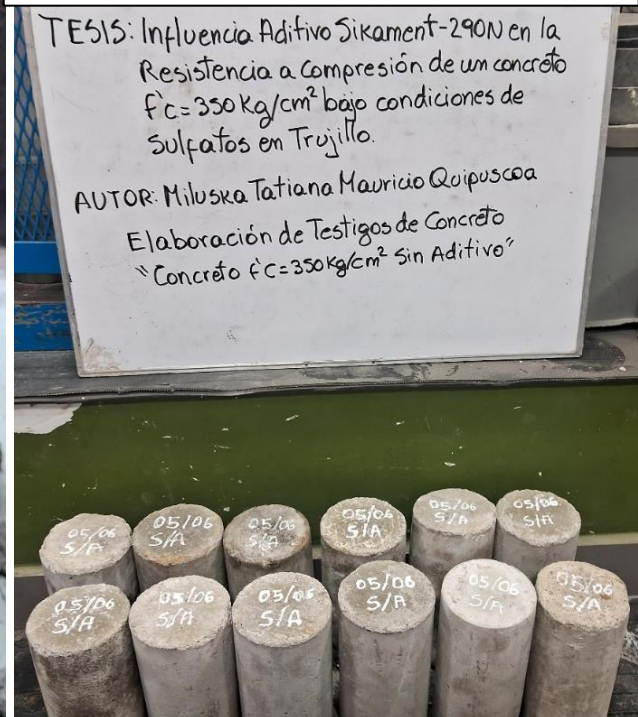 TESIS: Influencia Aditivo Sikament-290N en la
Resistencia a compresión de un concreto
f'c=350 Kg/cm² bajo condiciones de
Sulfatos en Trujillo.
AUTOR: Miluska Tatiana Mauricio Quipuscoa
Elaboración de Testigos de Concreto
"Concreto f'c=350kg/cm² Sin Aditivo"
05/06
S/A
05/06
S/A
05/06
S/A
05/06
S/A
05/06
S/A
05/06
S/A
05/06
S/A
05/06
S/A
05/06
S/A
05/06
S/A
05/06
S/A
05/06
S/A